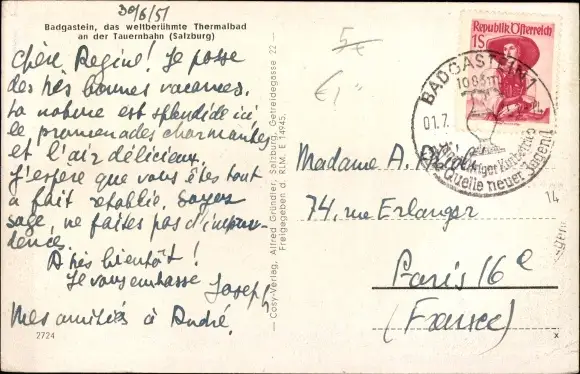 30/6/51
Badgastein, das weltberühmte Thermalbad
an der Tauernbahn (Salzburg)
Chère Régine! Je passe
des très bonnes vacances.
La nature est splendide ici
les promenades charmantes
et l'air délicieux.
J'espère que vous êtes tout
à fait rétablie, soyez
sage, ne faites pas d'impru-
dence.
A très bientôt!
Je vous embrasse Joseph
Mes amitiés à André.
2724
— Cosy-Verlag, Alfred Gründler, Salzburg, Getreidegasse 22 —
Freigegeben d. RLM. E 14945.
5€
€1
Republik Österreich
1S
BADGASTEIN 1
01.7.
Quelle neuer
14
Madame A.
74, rue Erlanger
Paris 16e
(France)
x